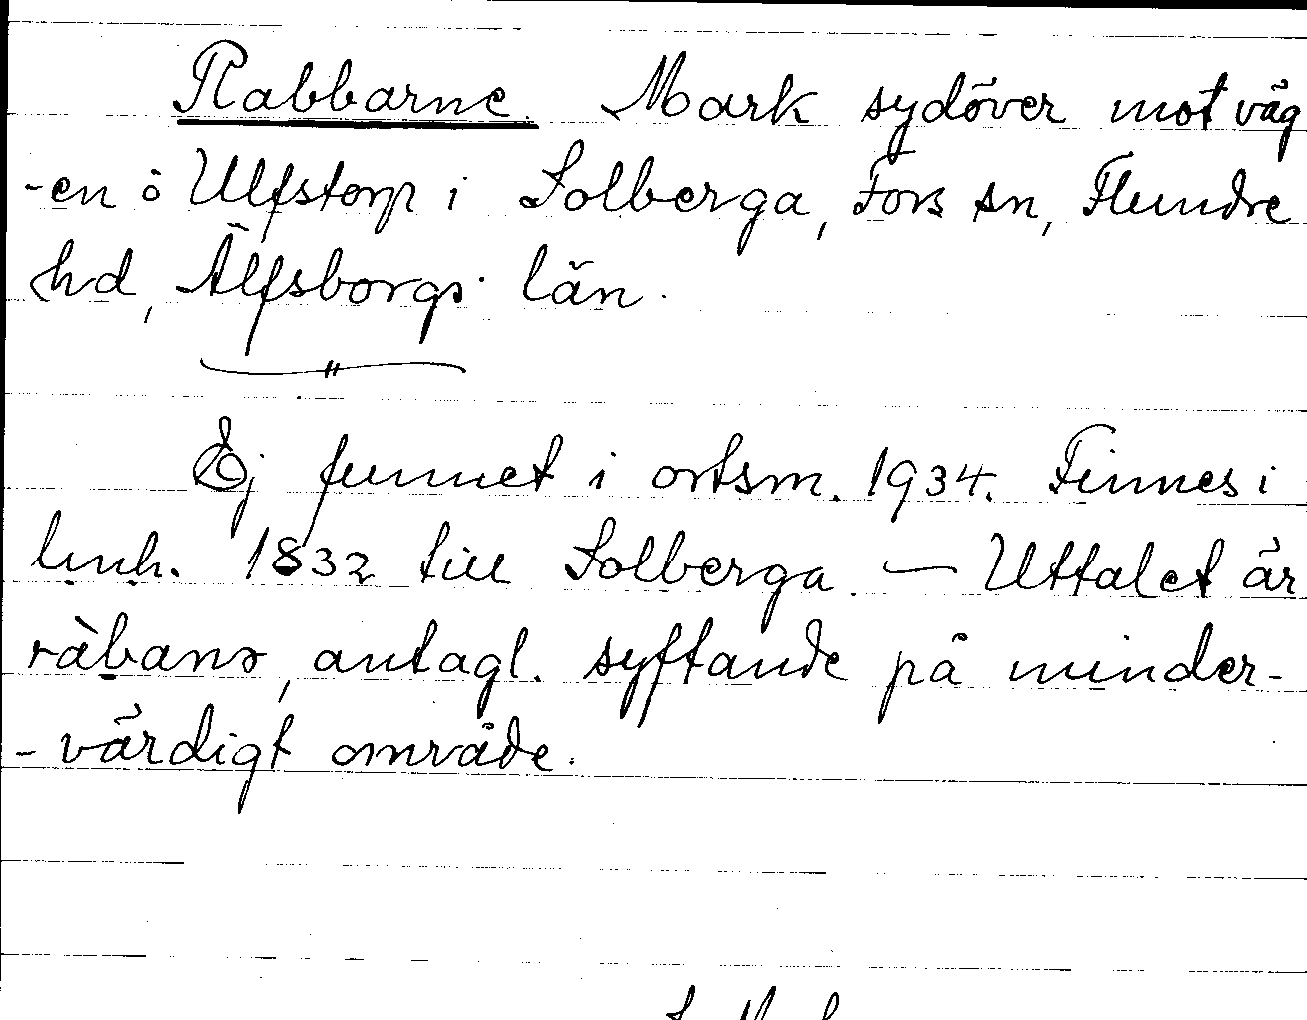 Rabbarne. Mark sydöver mot väg
-en ö Ulfstorp i Solberga, Fors sn, Flundre
hd, Älfsborgs län.
"
Ej funnet i ortsm. 1934. Finnes i
lmh. 1832 till Solberga. — Uttalet är
ràbanɘ, antagl. syftande på minder-
-värdigt område.